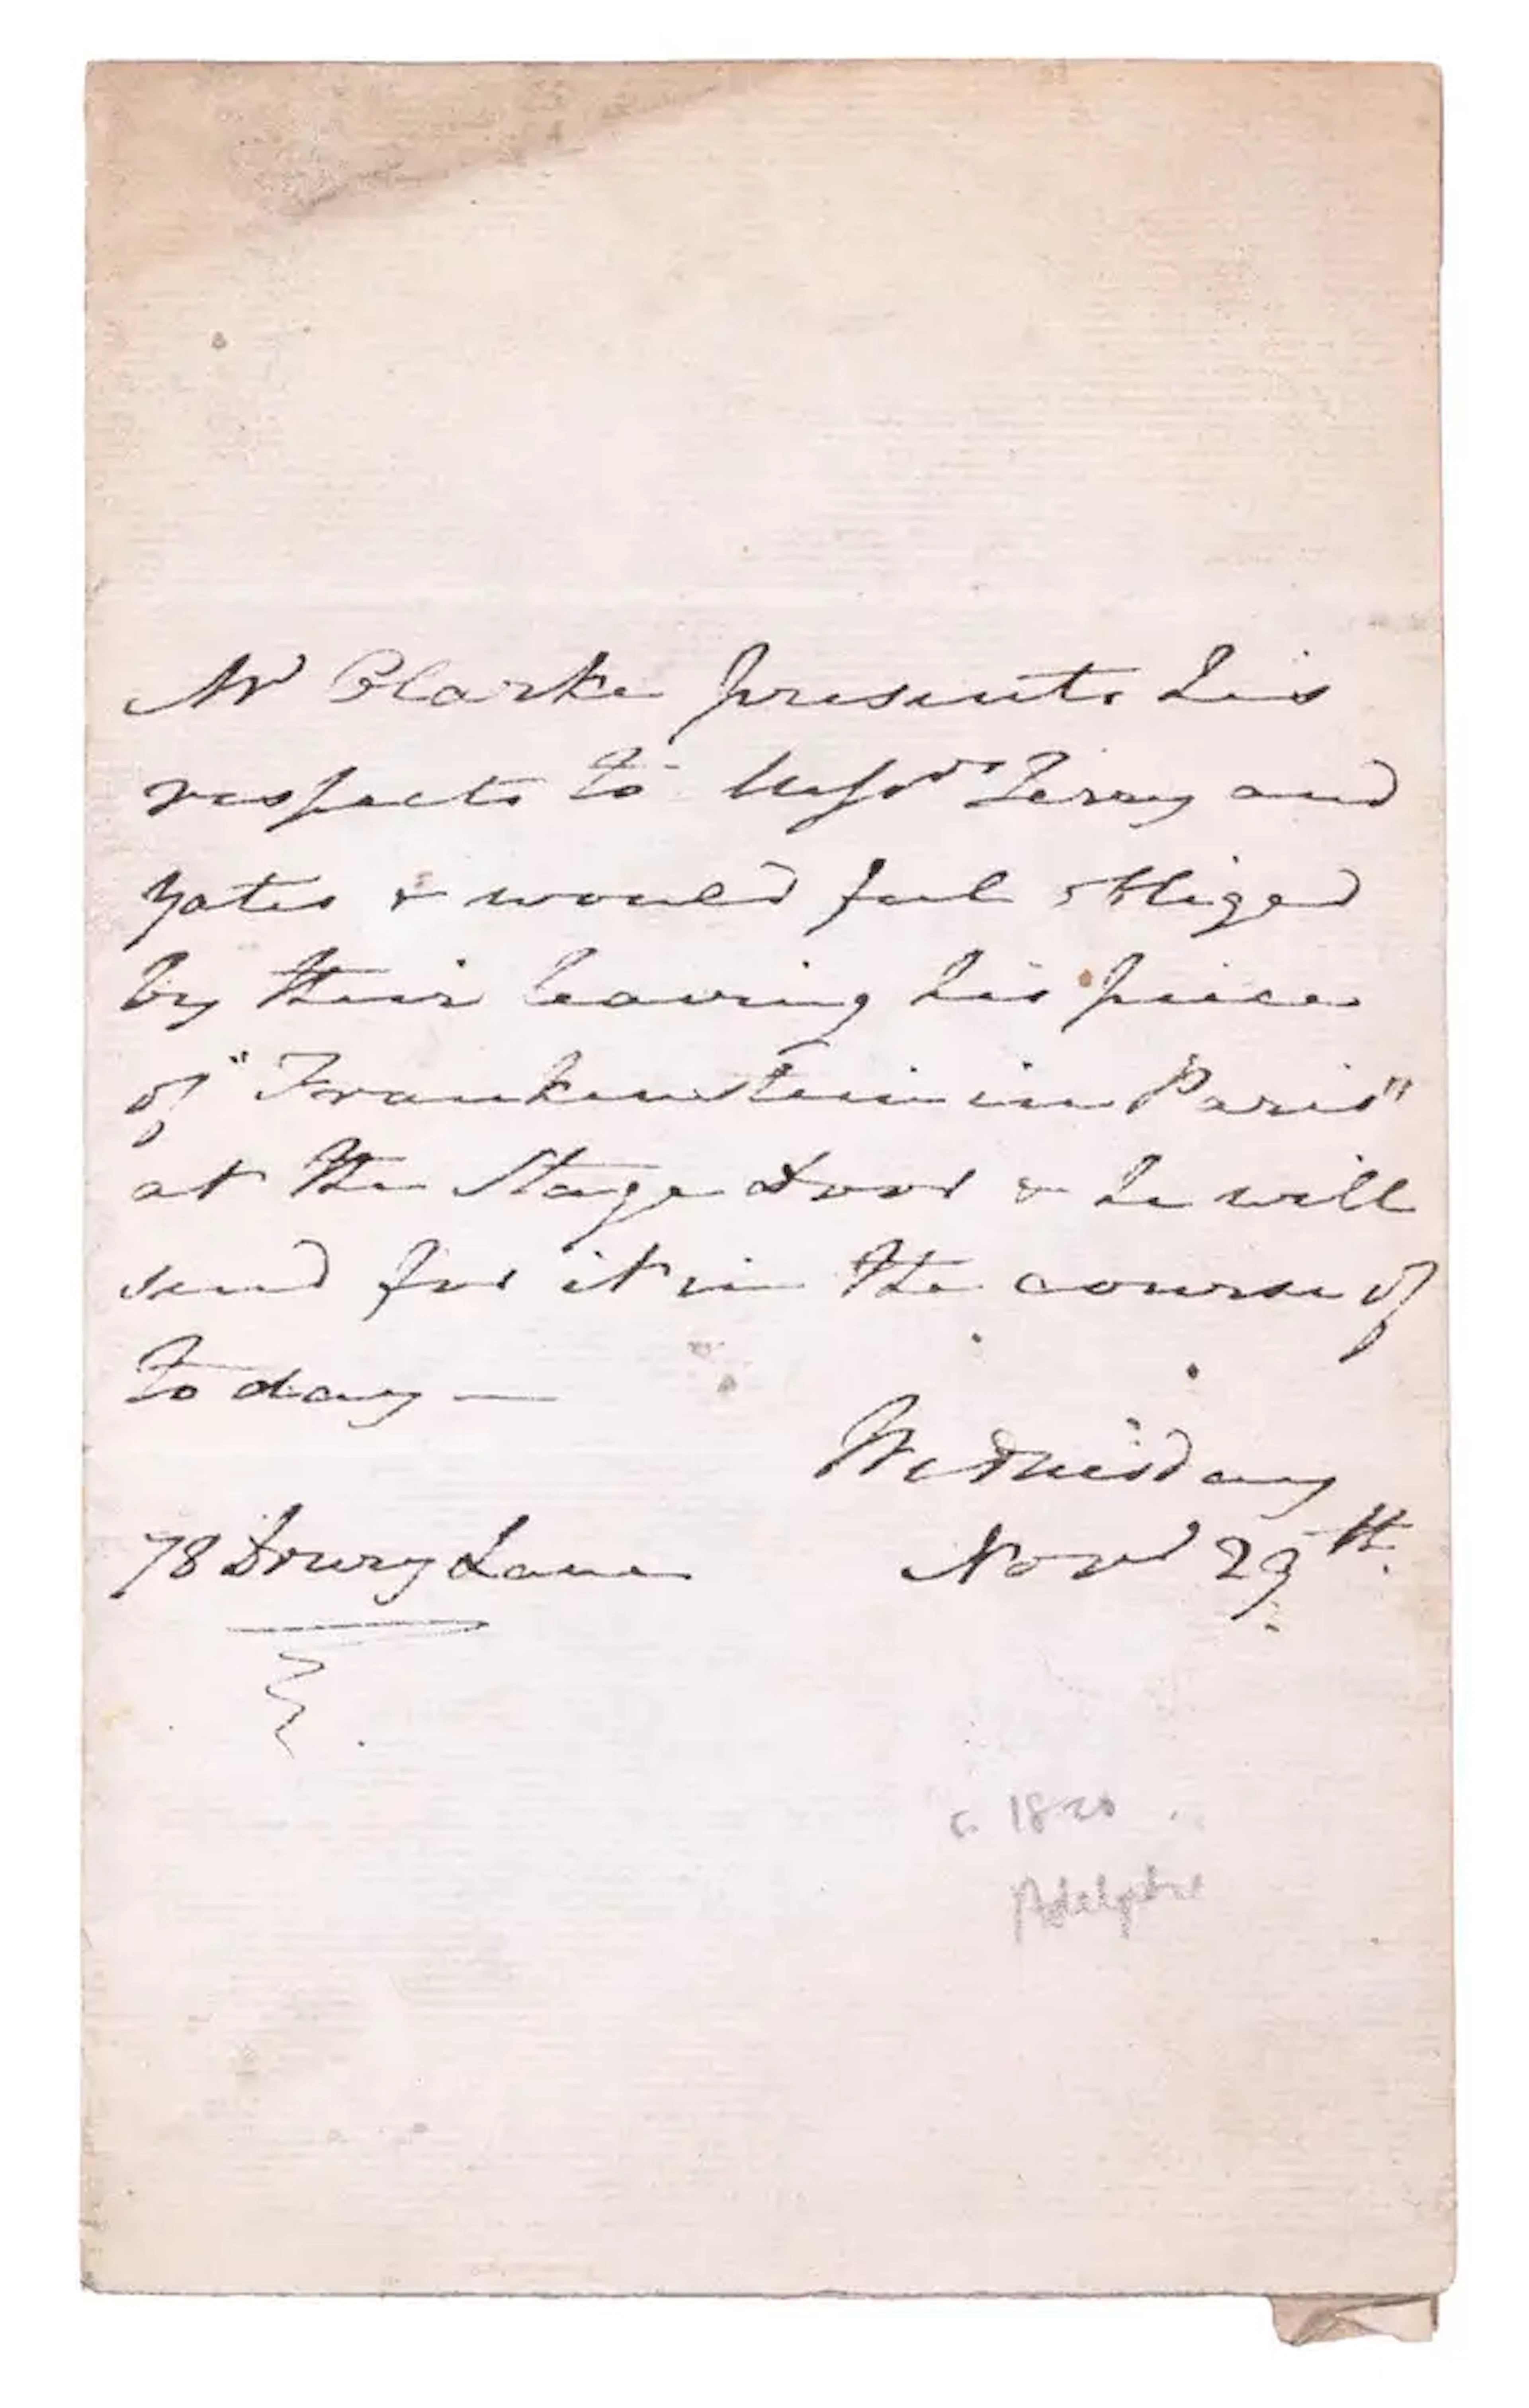 Mr Clarke presents his
respects to Messrs Terry and
Yates & would feel obliged
by their leaving his piece
of "Frankenstein in Paris"
at the Stage door & he will
send for it in the course of
to day —
Wednesday
78 Drury Lane Novr 29th.
c. 1820
Adelphi